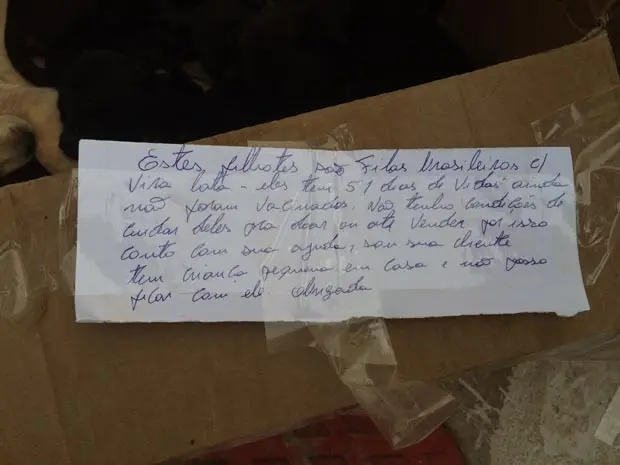 Estes filhotes são Filas brasileiros c/
Vira lata - eles tem 51 dias de vidas ainda
não foram vacinados. Não tenho condições de
cuidar deles pra doar ou até vender por isso
conto com sua ajuda, sou sua cliente
tem criança pequena em casa e não posso
ficar com ele obrigada